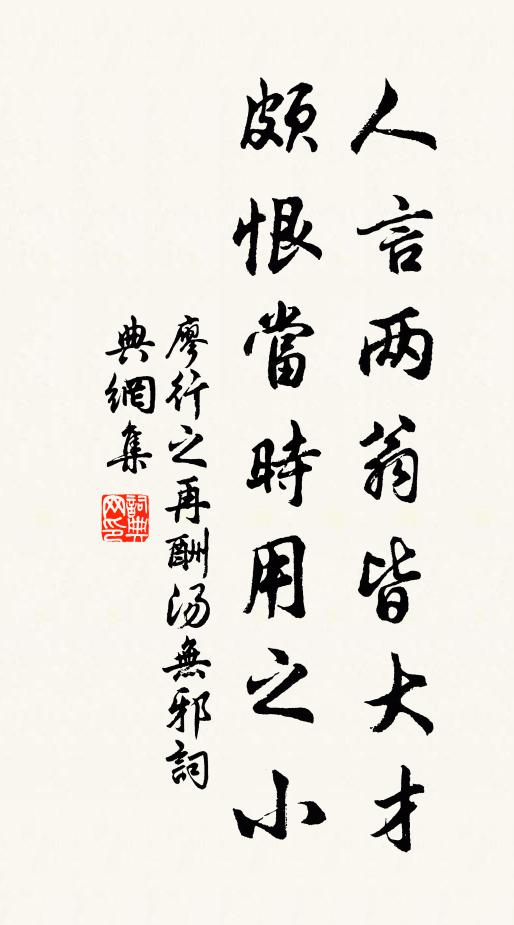 人言两翁皆大才
頗恨當時用之小
廖行之再酬汤無邪詞
典網集
詞典
网印